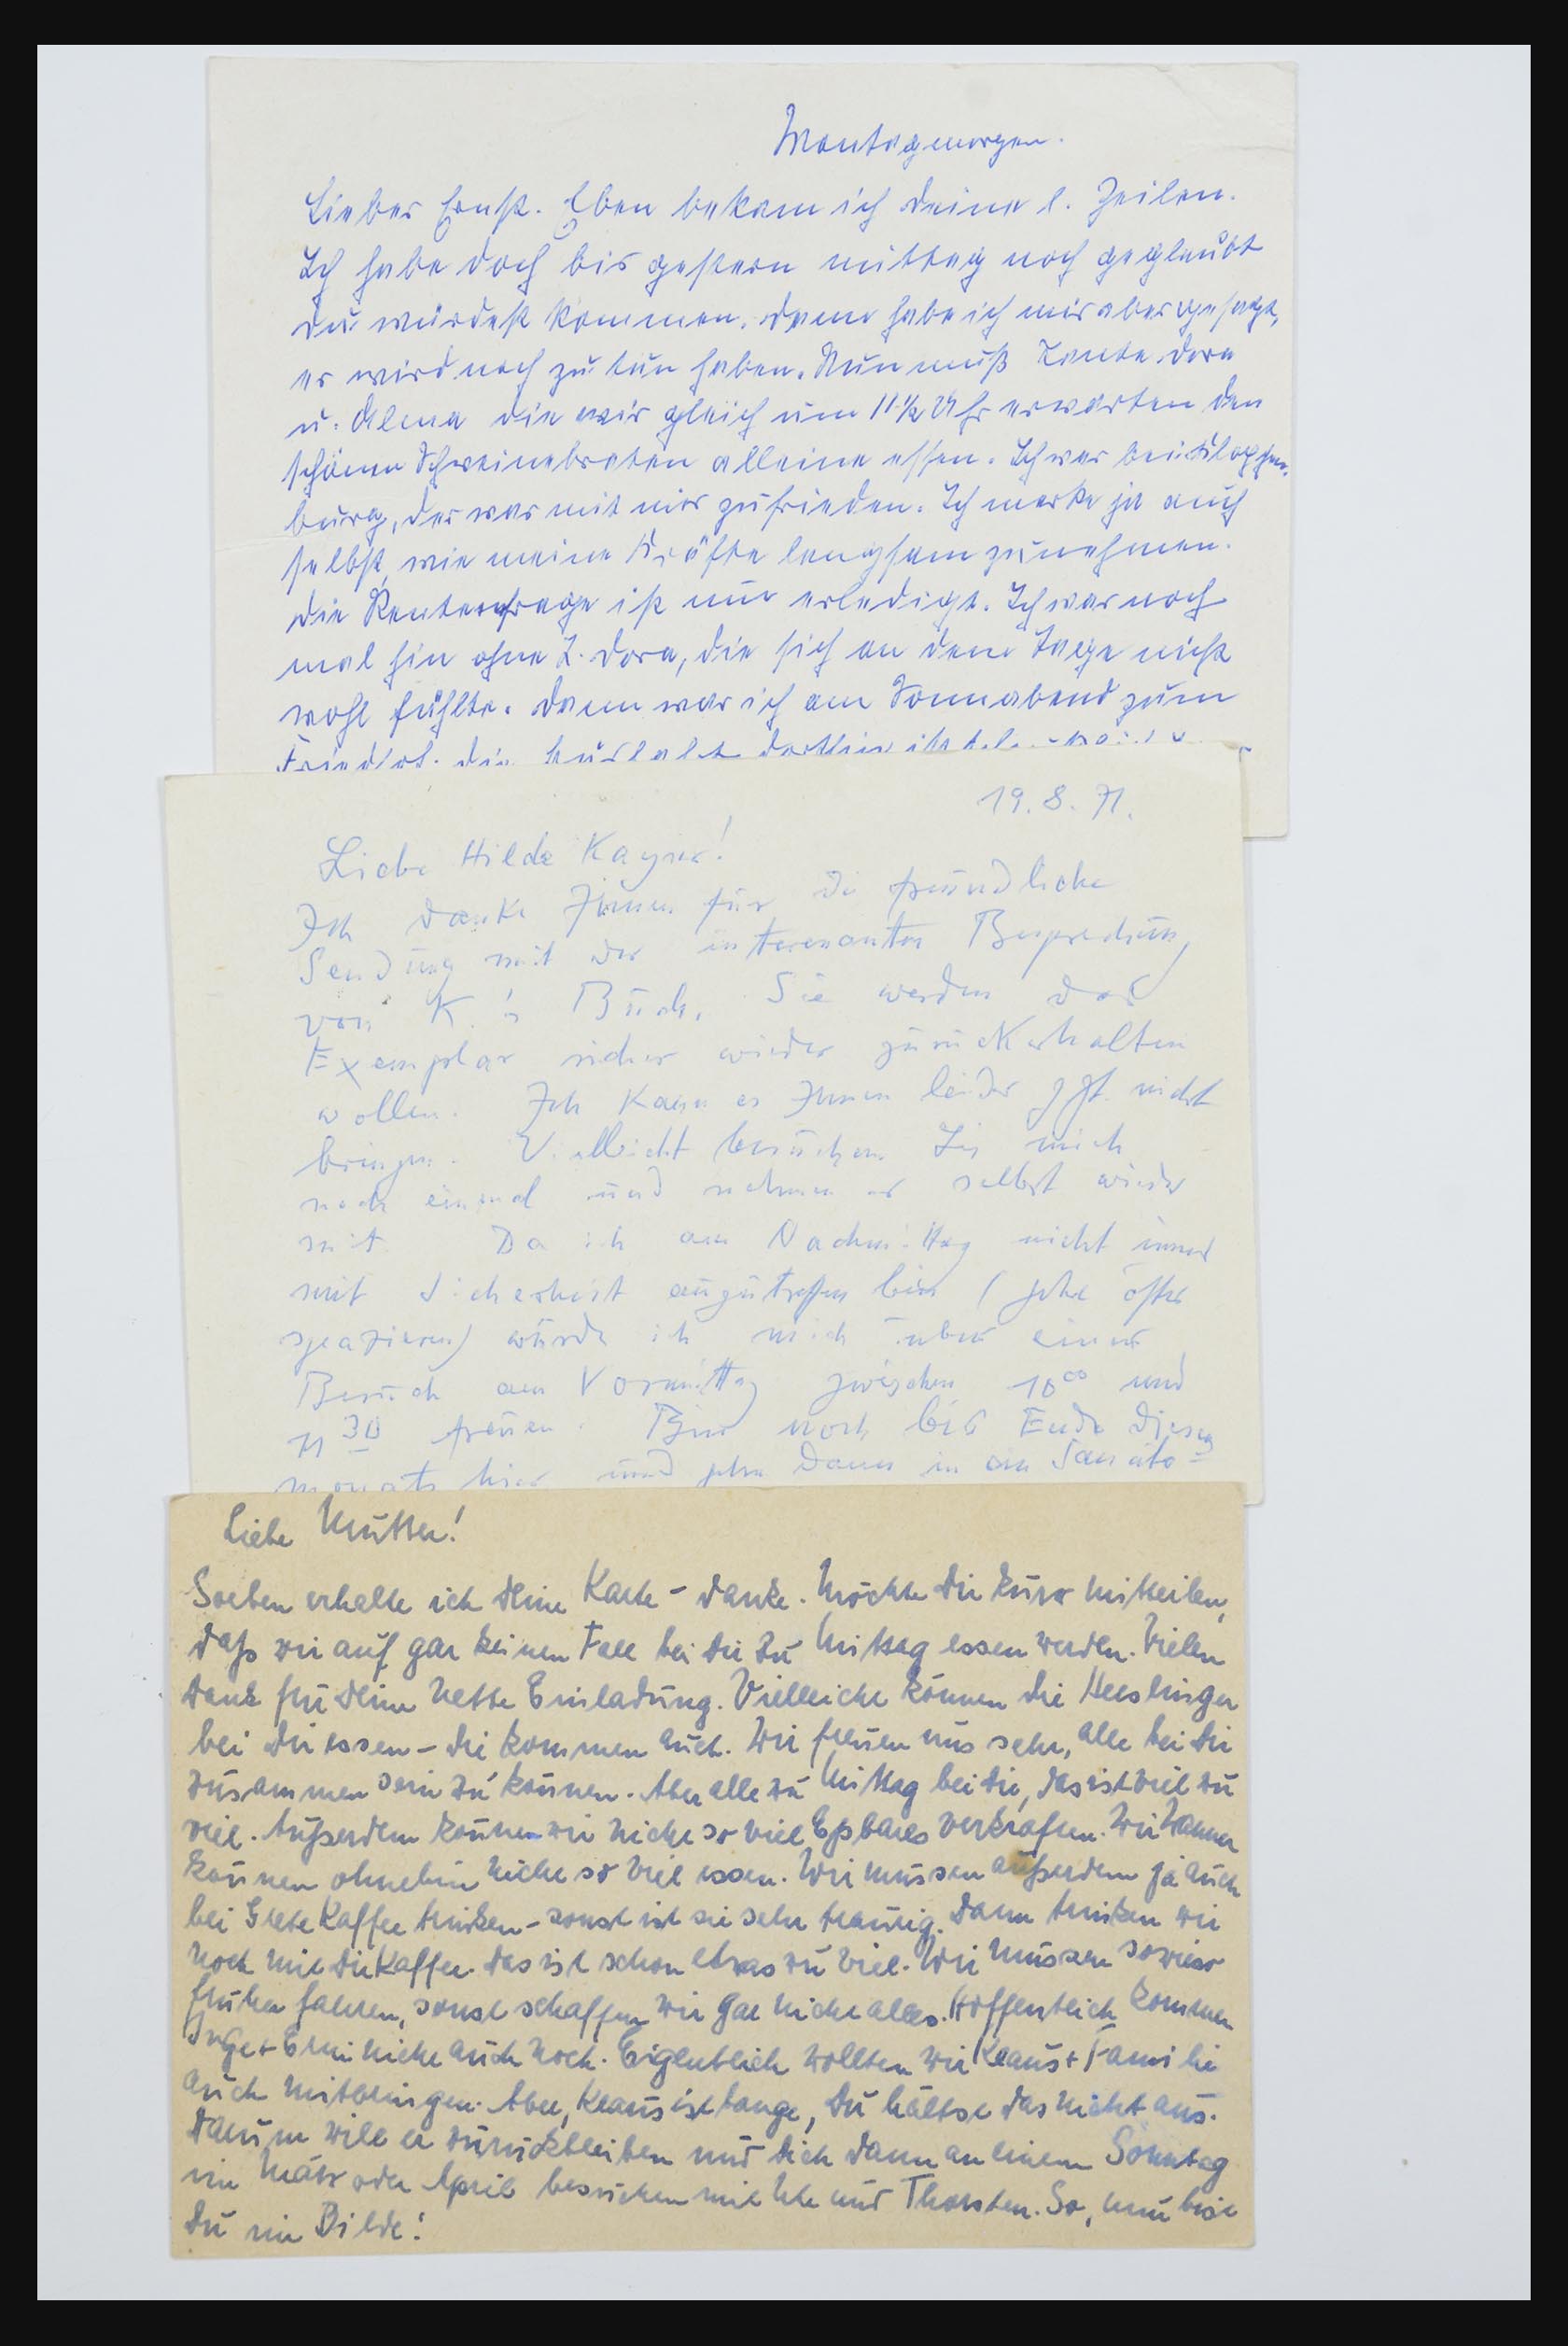 Montagmorgen.
Lieber Ernst. Eben bekam ich deine l. Zeilen.
Ich habe doch bis gestern mittag noch geglaubt
du würdest kommen. dann habe ich mir aber gesagt,
er wird noch zu tun haben. Nun muß Tante Dora
u. Alma die wir gleich um 11½ Uhr erwarten den
schönen Schweinebraten alleine essen. Ich war bei
burg, der war mit mir zufrieden. Ich merke ja auch
selbst, wie meine Kräfte langsam zunehmen.
die Rentenfrage ist nun erledigt. Ich war noch
mal hin ohne T. Dora, die sich an dem Tage nicht
wohl fühlte. dann war ich am Sonnabend zum
19.8.71.
Liebe Hilde Kayser!
Ich danke Ihnen für die freundliche
Sendung mit der interessanten Besprechung
von K.'s Buch. Sie werden das
Exemplar sicher wieder zurückerhalten
wollen. Ich kann es Ihnen leider zZt. nicht
bringen. Vielleicht besuchen Sie mich
noch einmal und nehmen es selbst wieder
mit. Da ich am Nachmittag nicht immer
mit Sicherheit anzutreffen bin (gehe öfter
spazieren) würde ich mich über einen
Besuch am Vormittag zwischen 10⁰⁰ und
11³⁰ freuen. Bin noch bis Ende dieses
monats hier und gehe dann in ein Sanato-
Liebe Mutter!
Soeben erhalte ich Deine Karte - danke. Möchte Dir kurz mitteilen,
daß wir auf gar keinen Fall bei Dir zu Mittag essen werden. Vielen
Dank für Deine nette Einladung. Vielleicht können die Heeslinger
bei Dir essen - die kommen auch. Wir freuen uns sehr, alle bei Dir
zusammen sein zu können. Aber alle zu Mittag bei Dir, das ist viel zu
viel. Außerdem können wir nicht so viel Eßbares verkraften. Wir
können ohnehin nicht so viel essen. Wir müssen außerdem ja auch
bei Grete Kaffee trinken - sonst ist sie sehr traurig. Dann trinken wir
noch mit Dir Kaffee. Das ist schon etwas zu viel. Wir müssen sowieso
früher fahren, sonst schaffen wir gar nicht alles. Hoffentlich kommen
Inge + Erni nicht auch noch. Eigentlich wollten wir Klaus + Familie
auch mitbringen. Aber, Klaus ist bange, Du hältst das nicht aus.
Darum will er zurückbleiben und Dich dann an einem Sonntag
im März oder April besuchen mit Ute und Thorsten. So, nun bist
Du im Bilde!